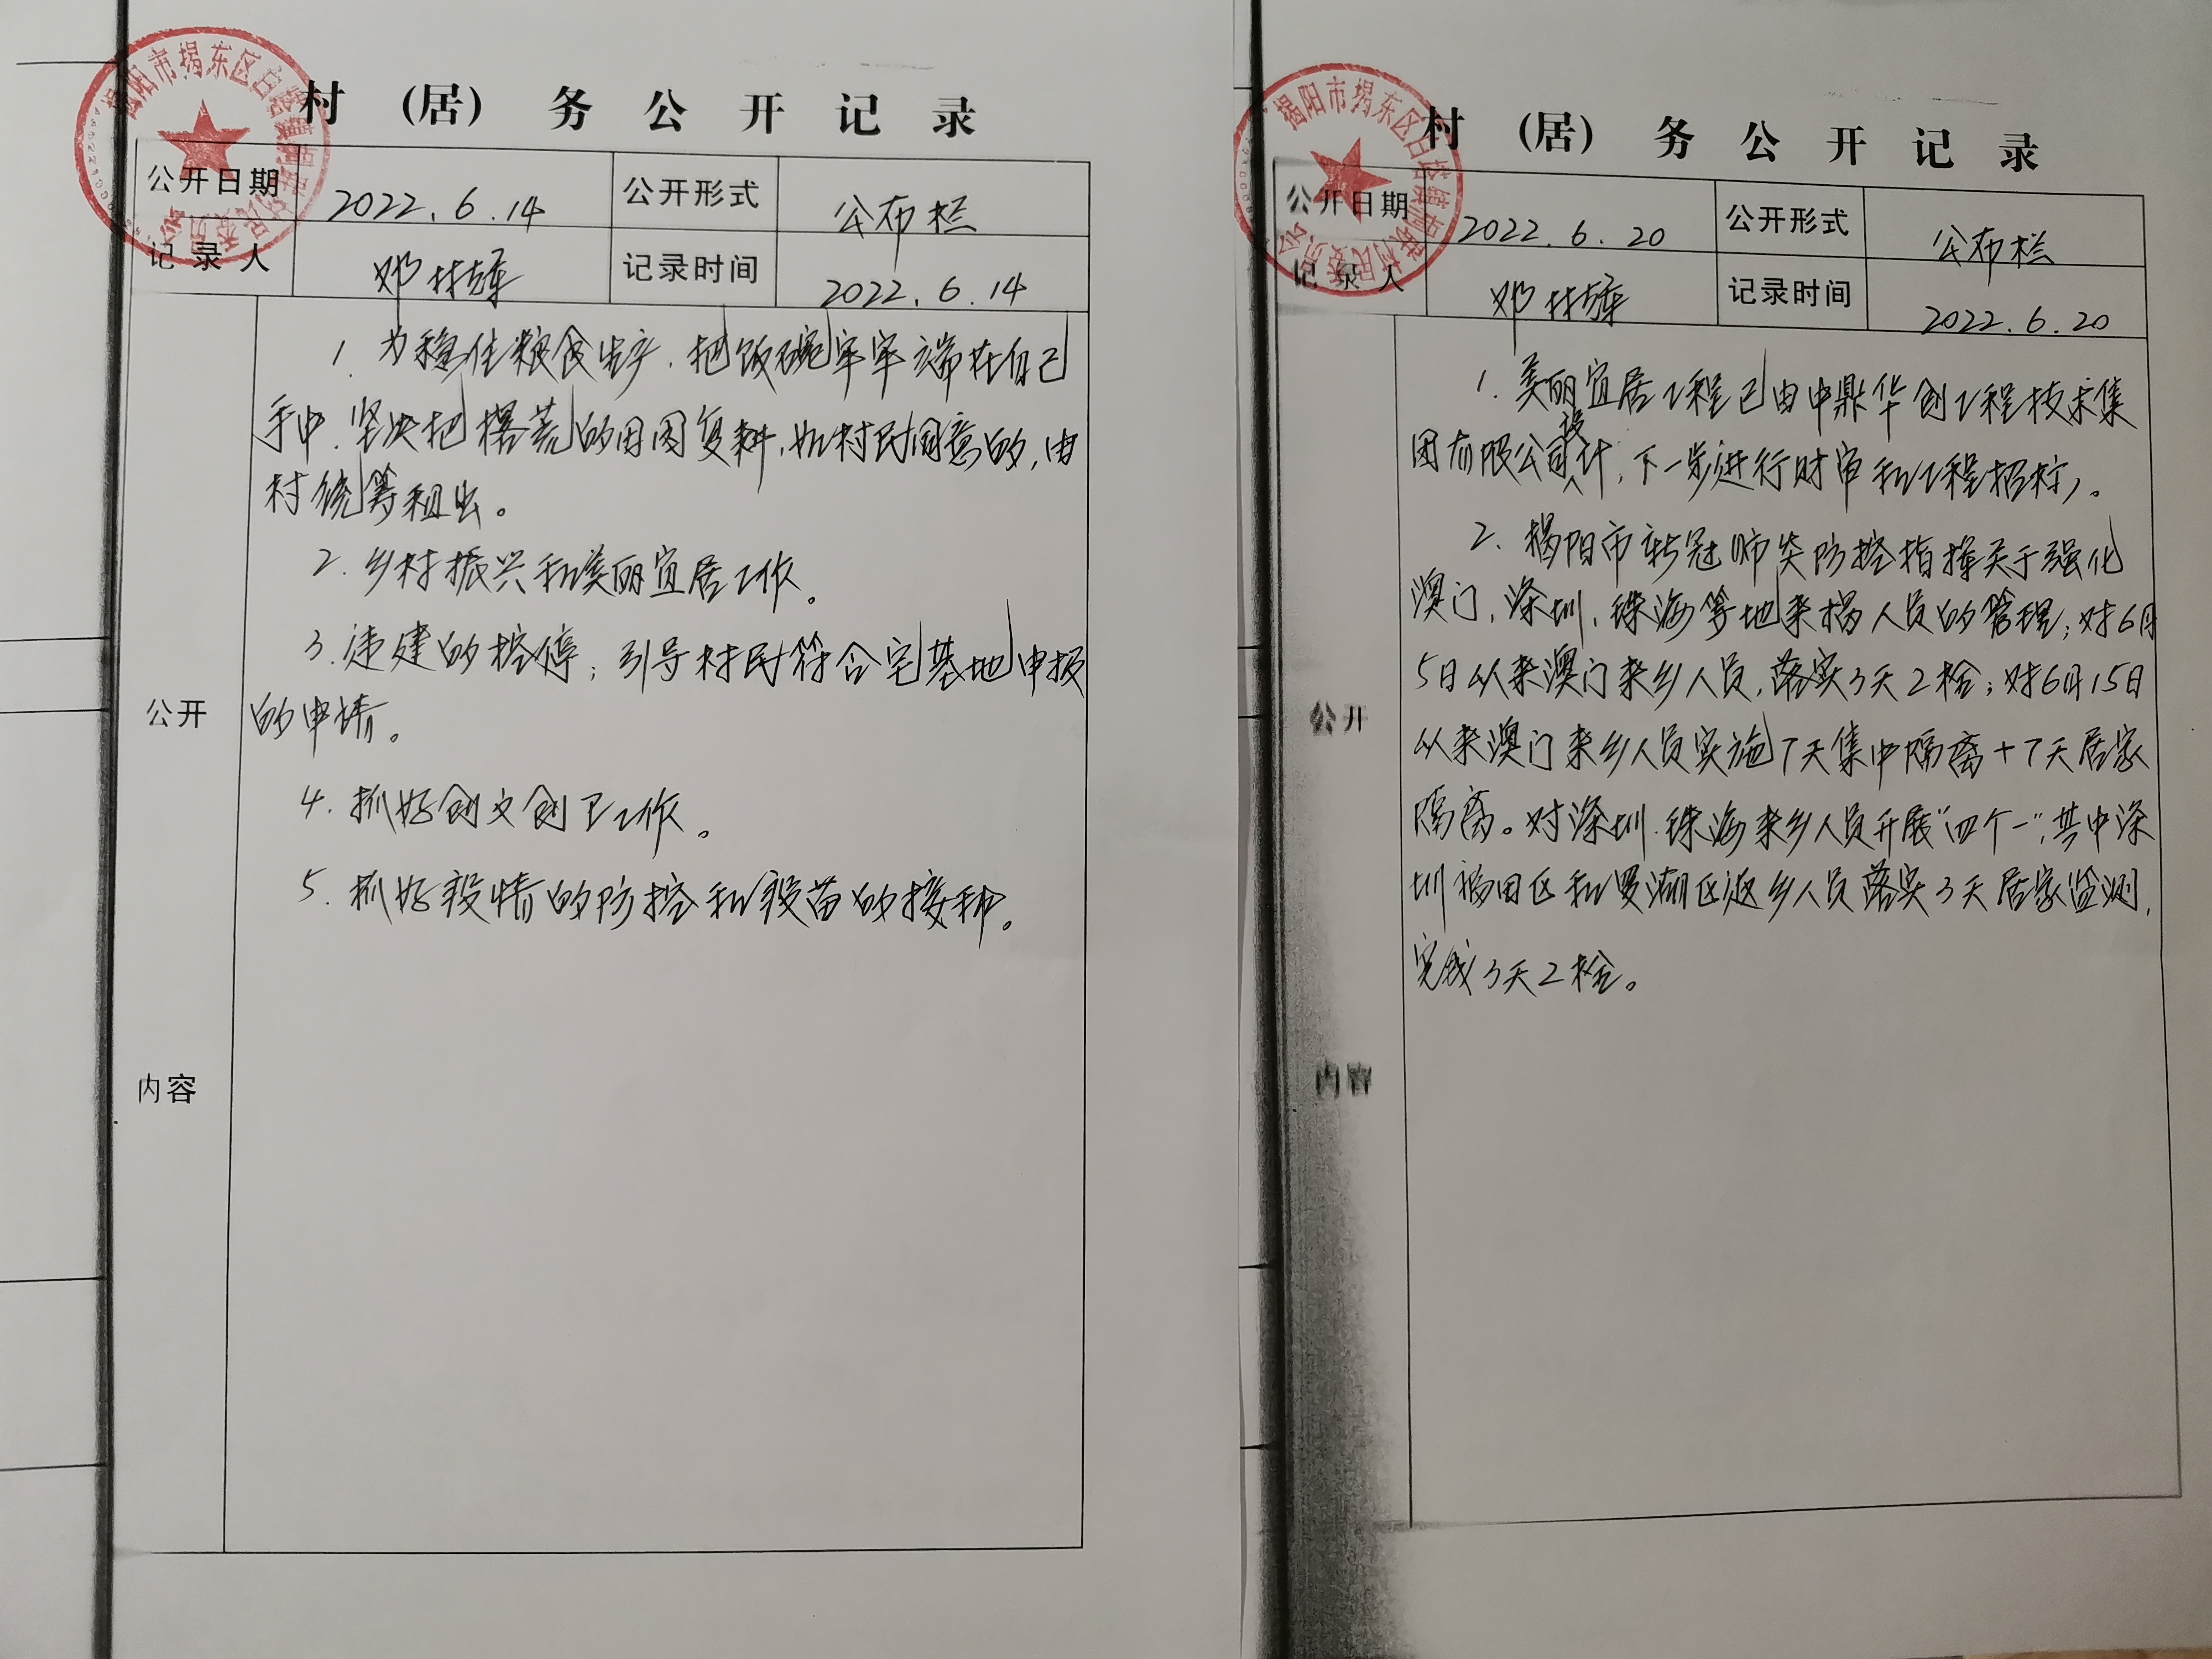 村（居）务公开记录
公开日期 2022.6.14 公开形式 公布栏
记录人 邓林 记录时间 2022.6.14
公开
内容
1.为稳住粮食生产,把饭碗牢牢端在自己
手中.坚决把撂荒的田园复耕,如村民同意的,由
村统筹租出。
2.乡村振兴和美丽宜居工作。
3.违建的控停;引导村民符合宅基地申报
的申请。
4.抓好创文创卫工作。
5.抓好疫情的防控和疫苗的接种。
揭阳市揭东区白塔镇 联村民委员会
村（居）务公开记录
公开日期 2022.6.20 公开形式 公布栏
记录人 邓林 记录时间 2022.6.20
公开
内容
1.美丽宜居工程已由中鼎华创工程技术集
团有限公司设计,下一步进行财审和工程招标。
2.揭阳市新冠肺炎防控指挥关于强化
澳门,深圳,珠海等地来揭人员的管理;对6月
5日从来澳门来乡人员,落实3天2检;对6月15日
从来澳门来乡人员实施7天集中隔离+7天居家
隔离。对深圳.珠海来乡人员开展"四个一",其中深
圳福田区和罗湖区返乡人员落实3天居家监测,
完成3天2检。
揭阳市揭东区白塔镇 联村民委员会